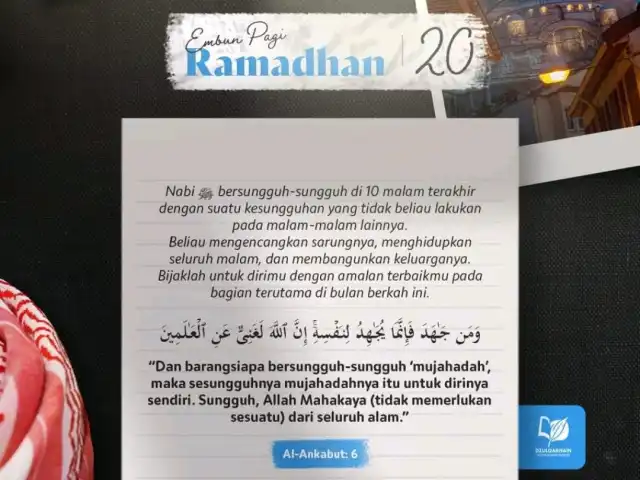 Embun Pagi
Ramadhan | 20
Nabi ﷺ bersungguh-sungguh di 10 malam terakhir
dengan suatu kesungguhan yang tidak beliau lakukan
pada malam-malam lainnya.
Beliau mengencangkan sarungnya, menghidupkan
seluruh malam, dan membangunkan keluarganya.
Bijaklah untuk dirimu dengan amalan terbaikmu pada
bagian terutama di bulan berkah ini.
وَمَن جَٰهَدَ فَإِنَّمَا يُجَٰهِدُ لِنَفْسِهِۦٓۚ إِنَّ ٱللَّهَ لَغَنِىٌّ عَنِ ٱلْعَٰلَمِينَ
“Dan barangsiapa bersungguh-sungguh ‘mujahadah’,
maka sesungguhnya mujahadahnya itu untuk dirinya
sendiri. Sungguh, Allah Mahakaya (tidak memerlukan
sesuatu) dari seluruh alam.”
Al-Ankabut: 6
DZULQARNAIN